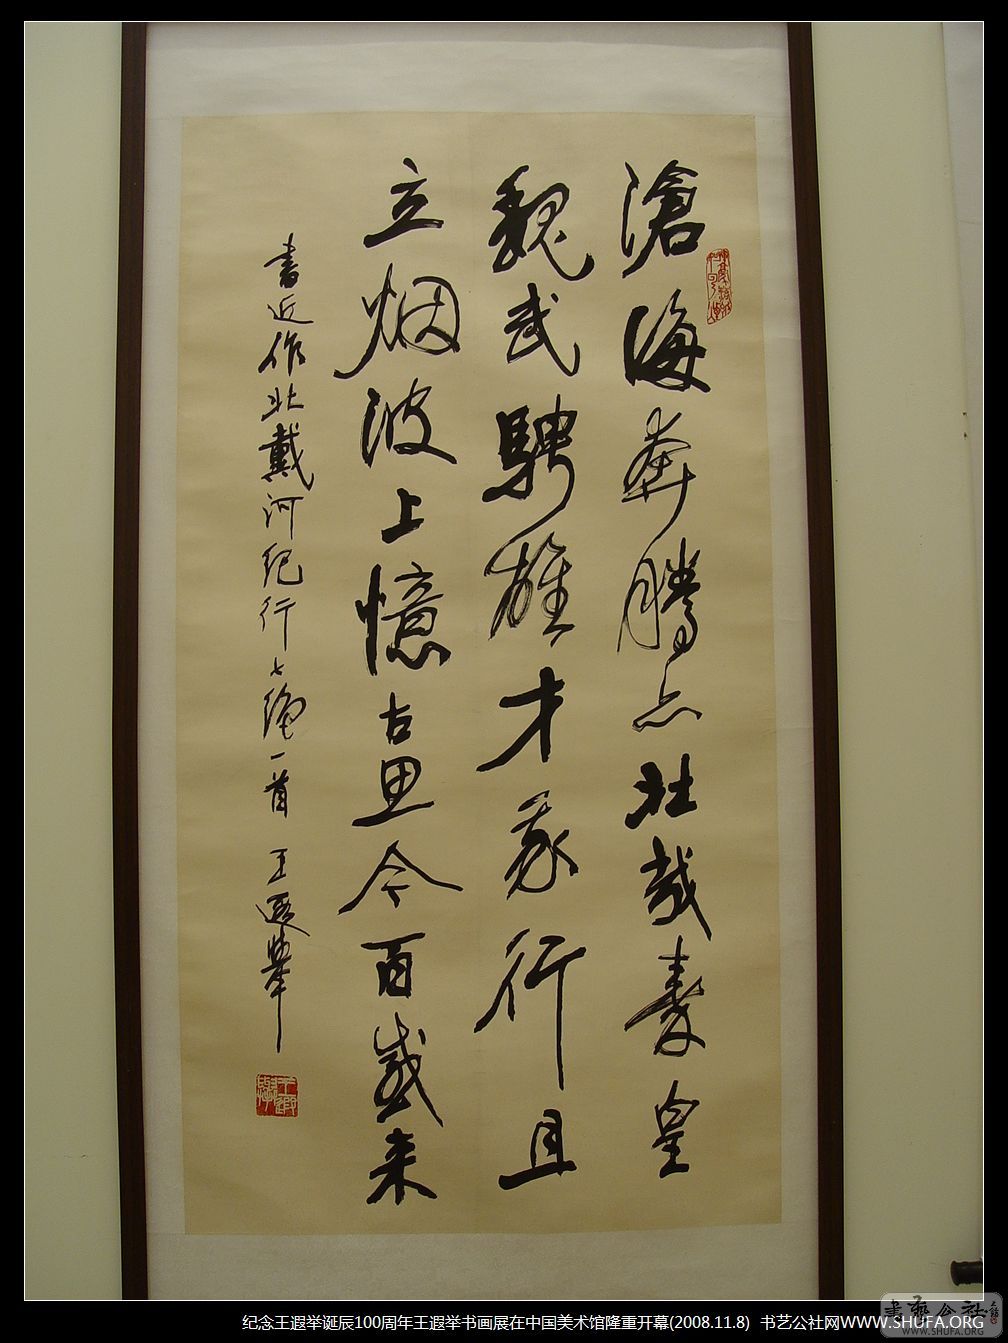 滄海奔騰亦壯哉秦皇
魏武騁雄才我行且
立烟波上憶古思今百感来
書近作北戴河紀行七絶一首 王遐舉
纪念王遐举诞辰100周年王遐举书画展在中国美术馆隆重开幕(2008.11.8) 书艺公社网WWW.SHUFA.ORG
WWW.SHUFA.ORG